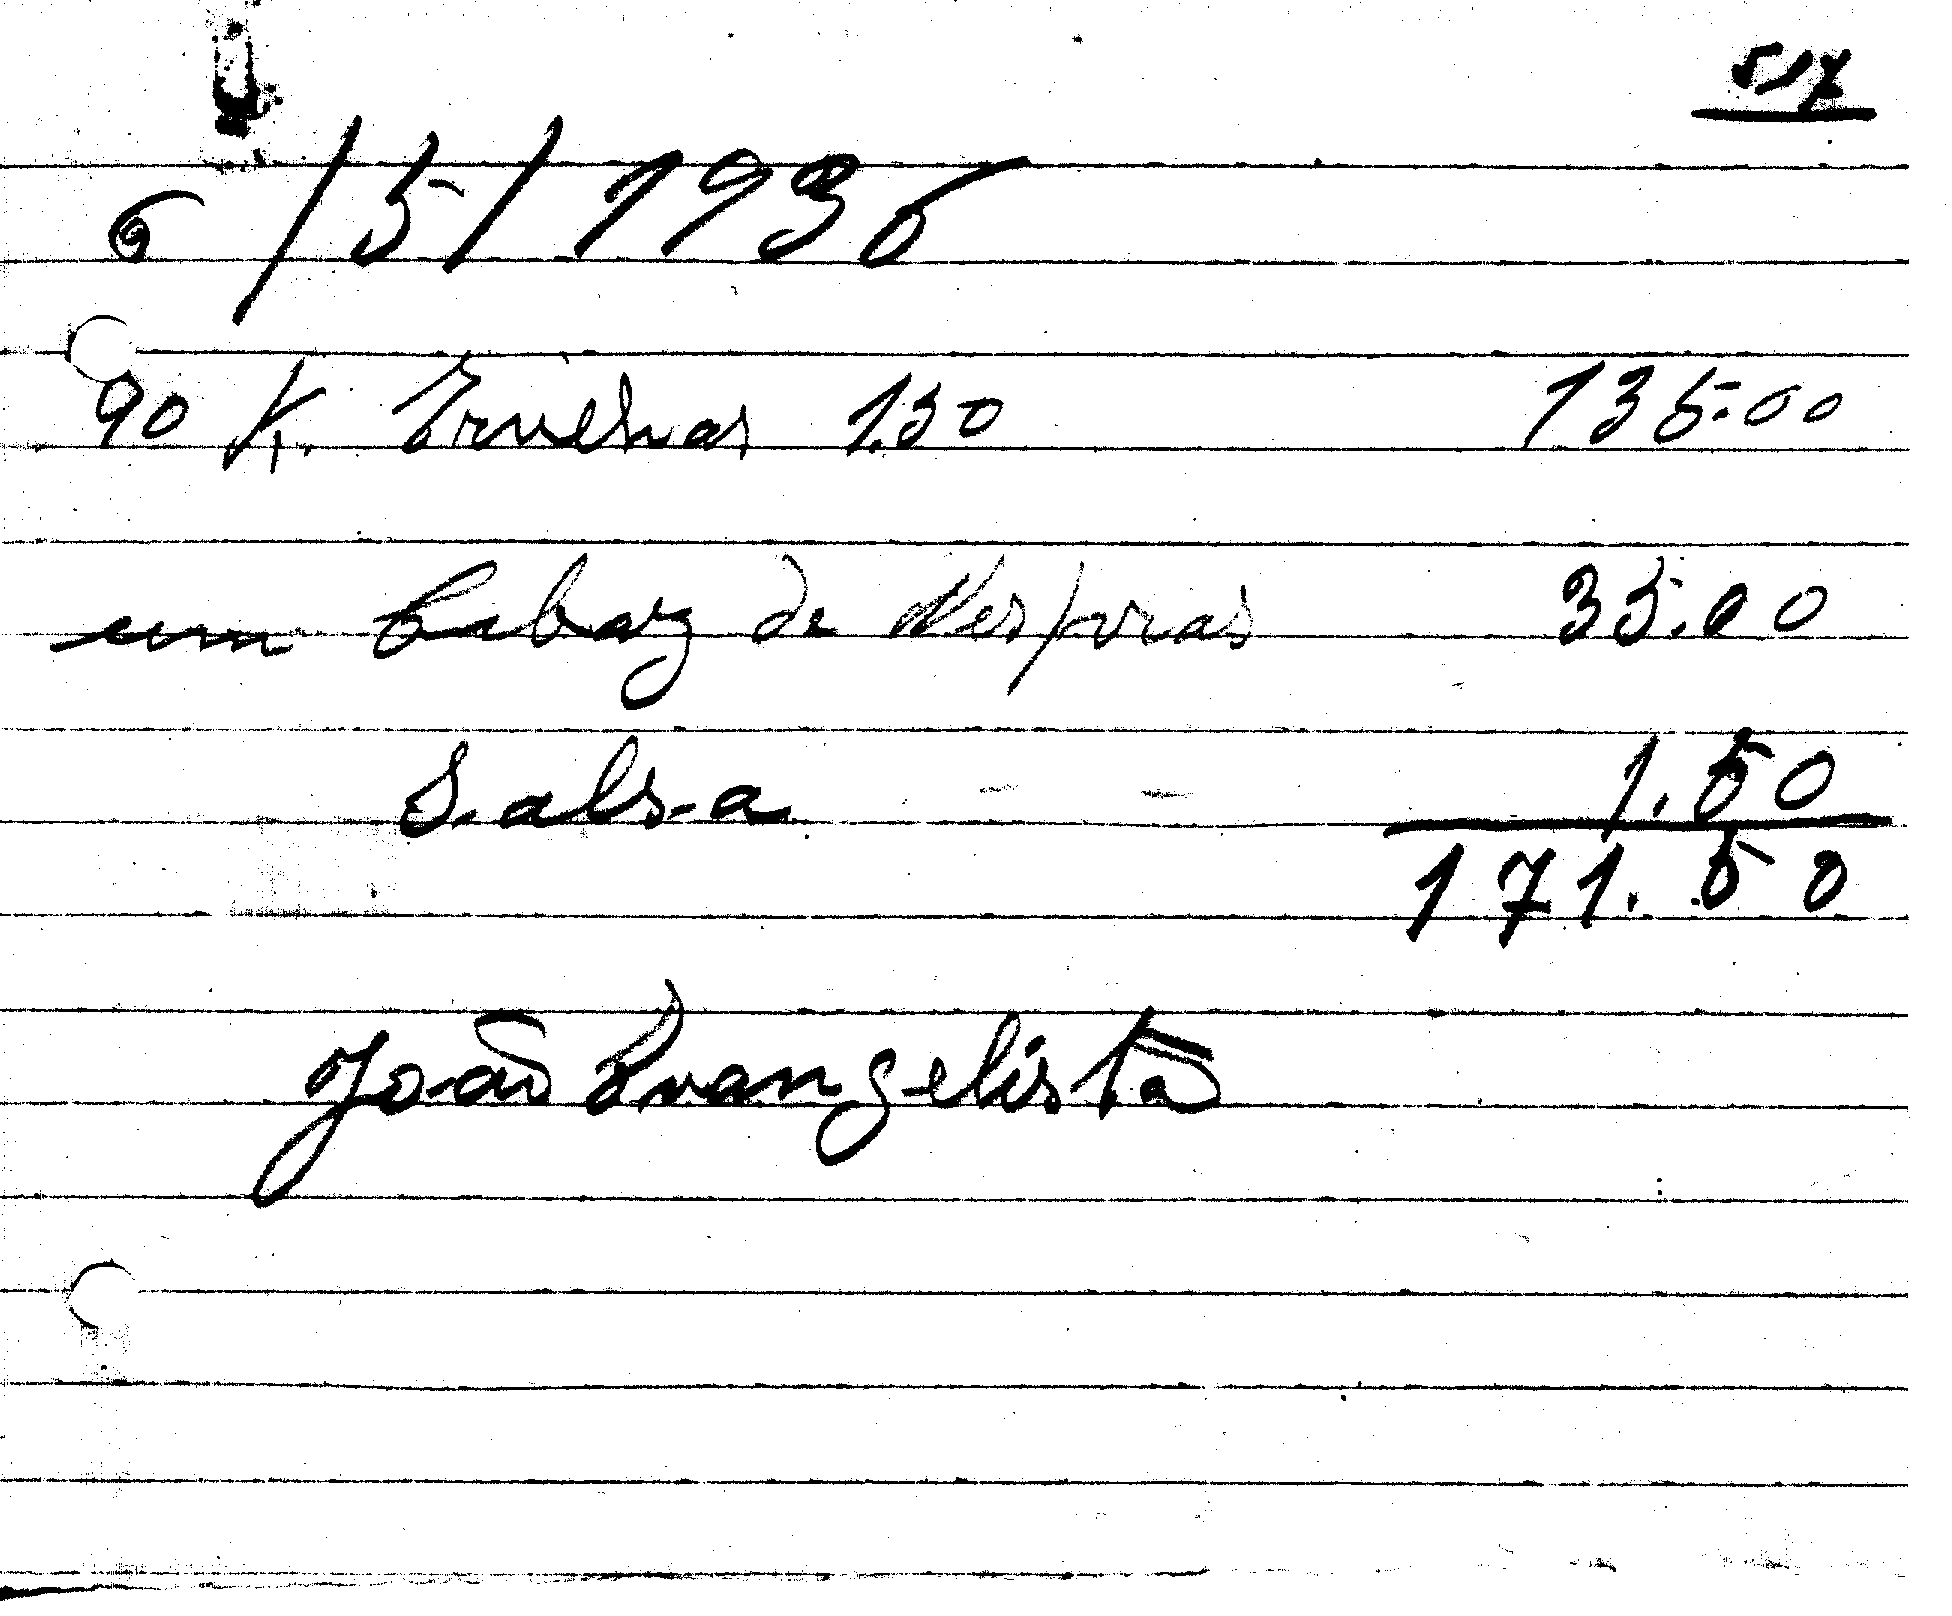 517
6/5/1936
90 K. Ervilhas 1.50 135.00
um Cabaz de Nesporas 35.00
Salsa - - 1.50
171.50
João Evangelista